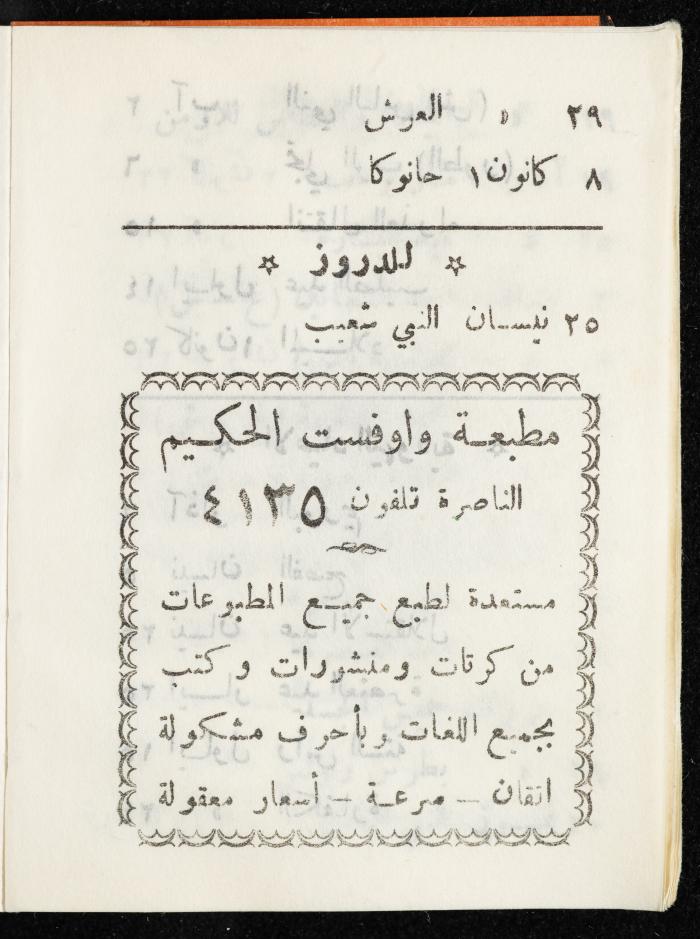 ٢٩ » العرش
٨ كانون ١ حانوكا
☆ للدروز ☆
٢٥ نيسان النبي شعيب
مطبعة واوفست الحكيم
الناصرة تلفون ٤١٣٥
مستعدة لطبع جميع المطبوعات
من كرتات ومنشورات وكتب
بجميع اللغات وبأحرف مشكولة
اتقان – سرعة – أسعار معقولة